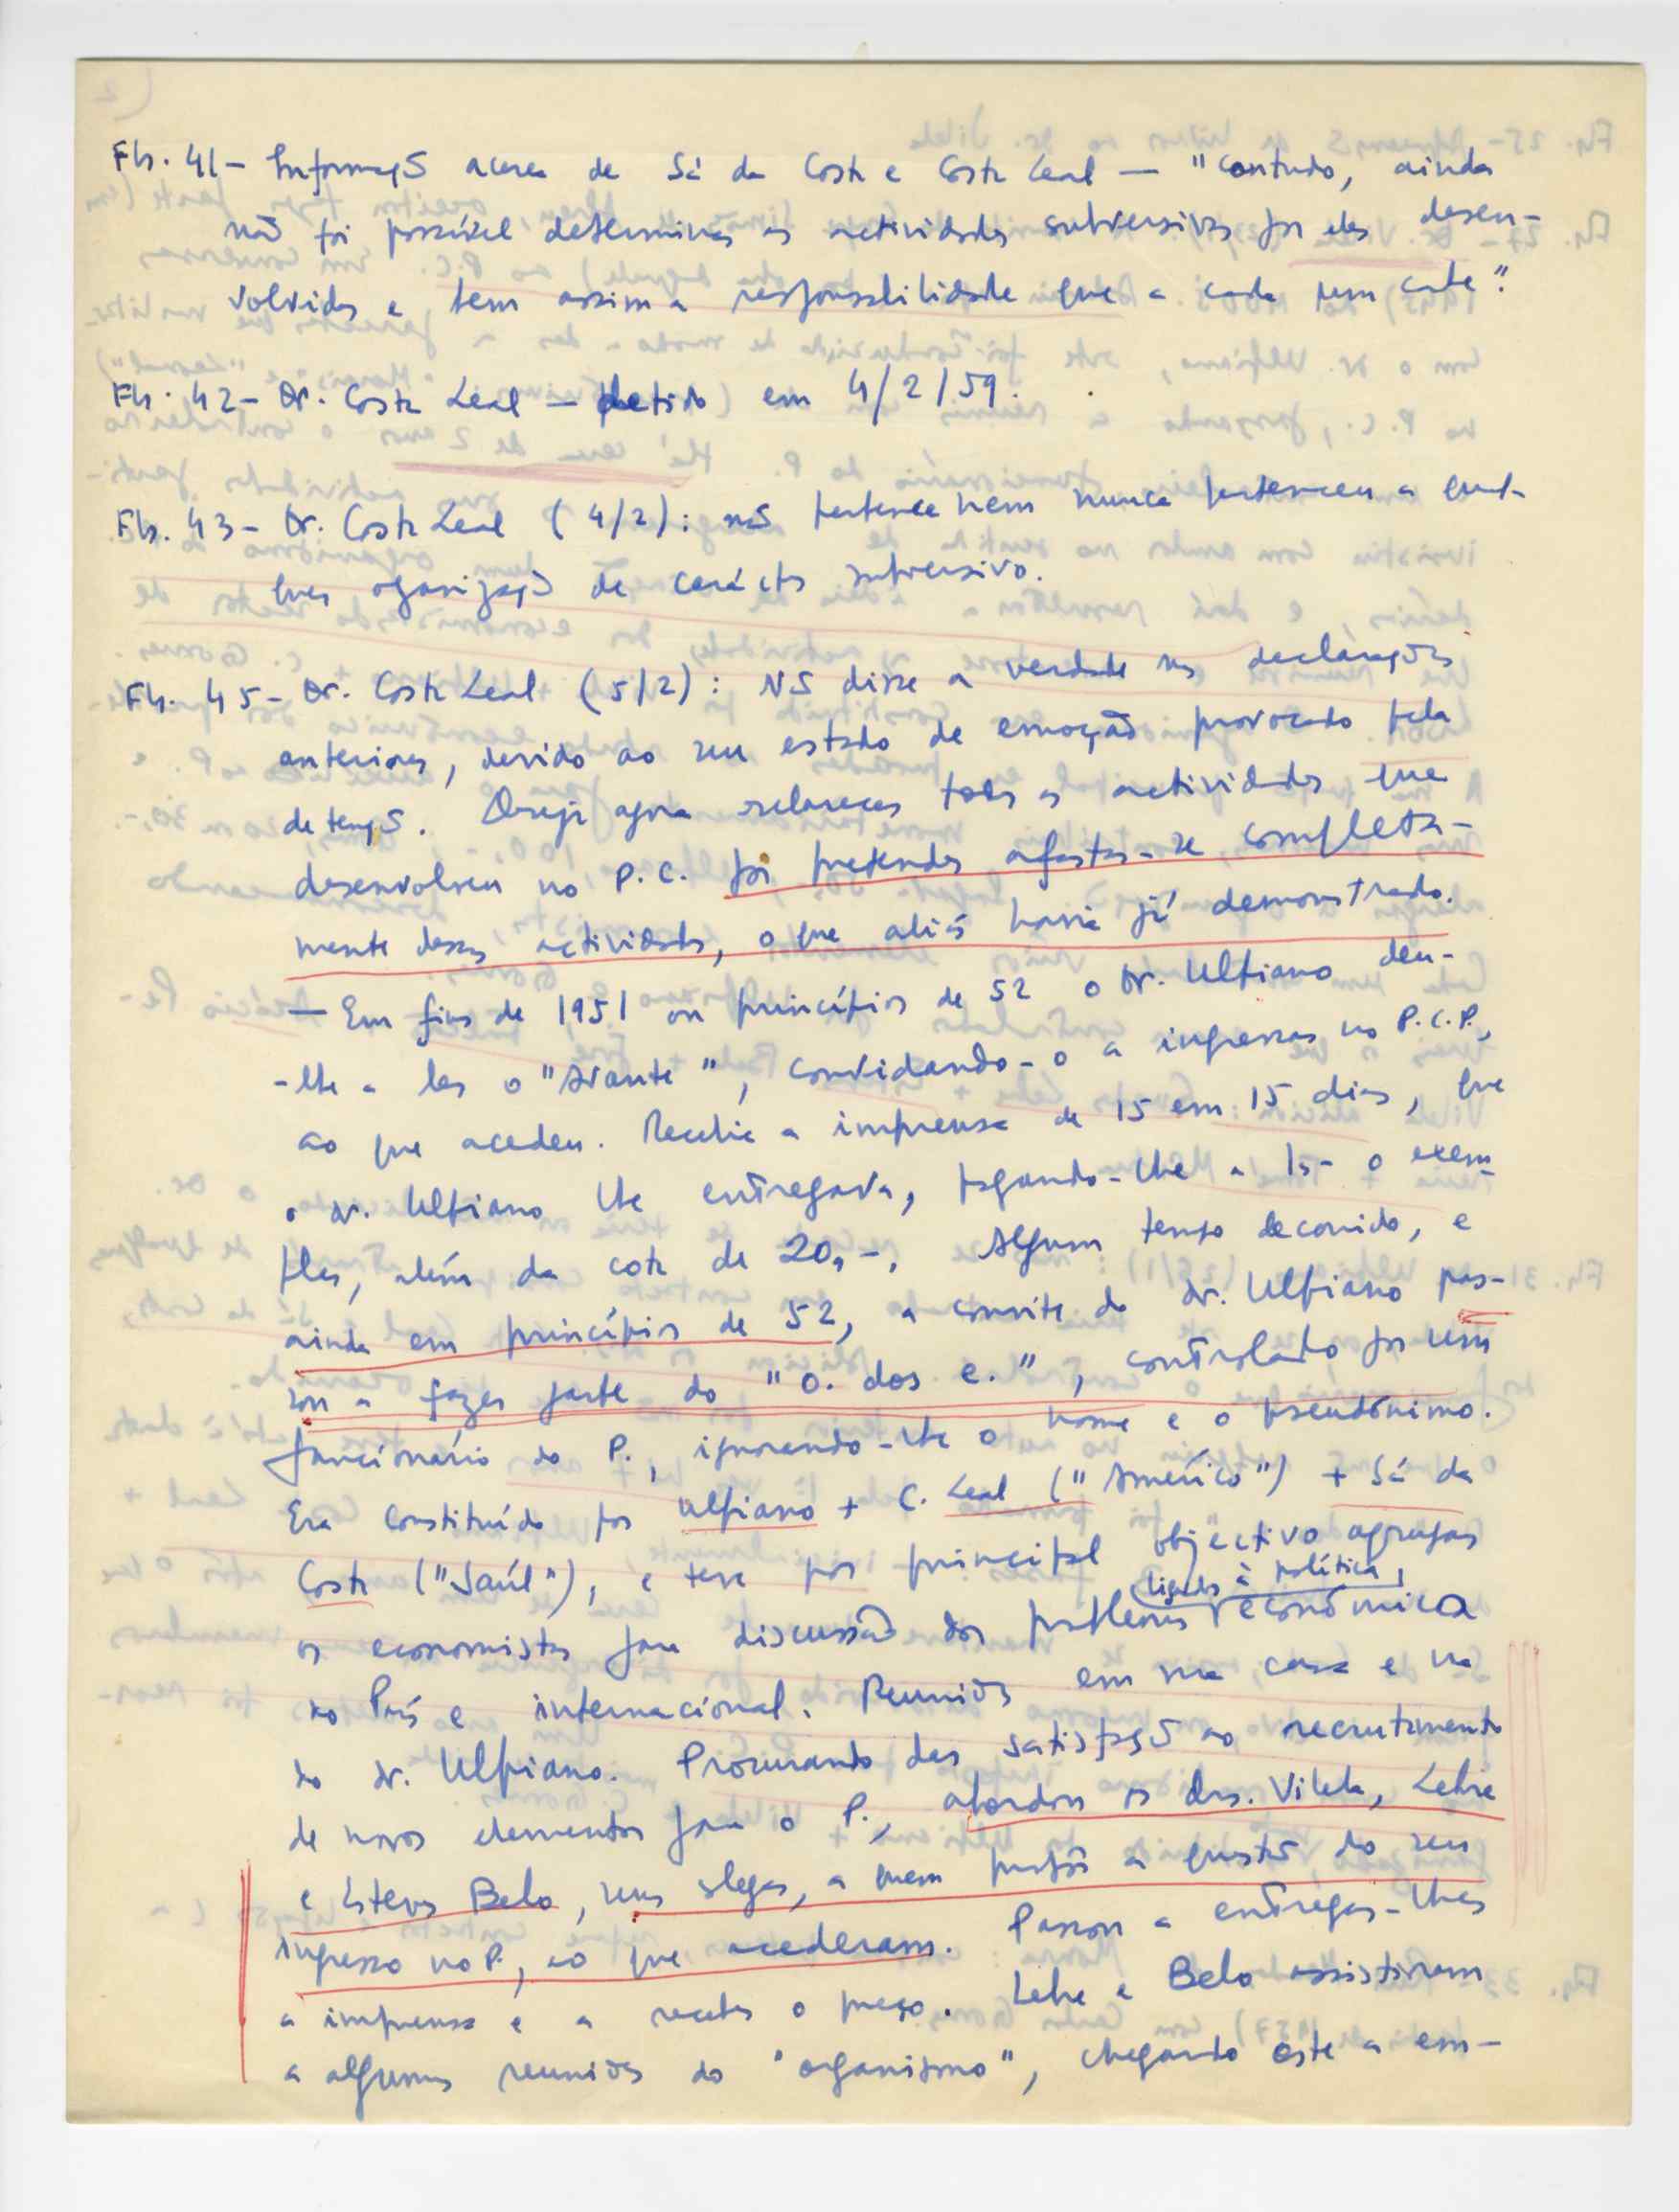 Fls. 41 - Informação acerca de Sá da Costa e Costa Leal — "contudo, ainda
não foi possível determinar as actividades subversivas por eles desen-
volvidas e bem assim a responsabilidade que a cada um cabe".
Fls. 42 - Dr. Costa Leal — detido em 4/2/59.
Fls. 43 - Dr. Costa Leal (4/2): não pertence nem nunca pertenceu a qual-
quer organização de carácter subversivo.
Fls. 45 - Dr. Costa Leal (5/2): Não disse a verdade nas declarações
anteriores, devido ao seu estado de emoção provocado pela
detenção. Deseja agora esclarecer todas as actividades que
desenvolveu no P.C. pois pretende afastar-se completa-
mente dessas actividades, o que aliás havia já demonstrado.
— Em fins de 1951 ou princípios de 52 o Dr. Ulpiano deu-
-lhe a ler o "Avante", convidando-o a ingressar no P.C.P.,
ao que acedeu. Recebia a imprensa de 15 em 15 dias, que
o dr. Ulpiano lhe entregava, pagando-lhe a 1$- o exem-
plar, além da cota de 20$-. Algum tempo decorrido, e
ainda em princípios de 52, a convite do dr. Ulpiano pas-
sou a fazer parte do "O. dos e.", controlado por um
funcionário do P., ignorando-lhe o nome e o pseudónimo.
Era constituído por Ulpiano + C. Leal ("Américo") + Sá da
Costa ("Saúl"), e teve por principal objectivo agrupar
os economistas para discussão dos problemas ligados à política económica
do País e internacional. Reuniões em sua casa e na
do dr. Ulpiano. Procurando dar satisfação ao recrutamento
de novos elementos para o P., abordou os drs. Vilela, Lebre
e Esteves Belo, seus colegas, a quem propôs a questão do seu
ingresso no P., ao que acederam. Passou a entregar-lhes
a imprensa e a receber o preço. Lebre e Belo assistiram
a algumas reuniões do "organismo", chegando este a em-